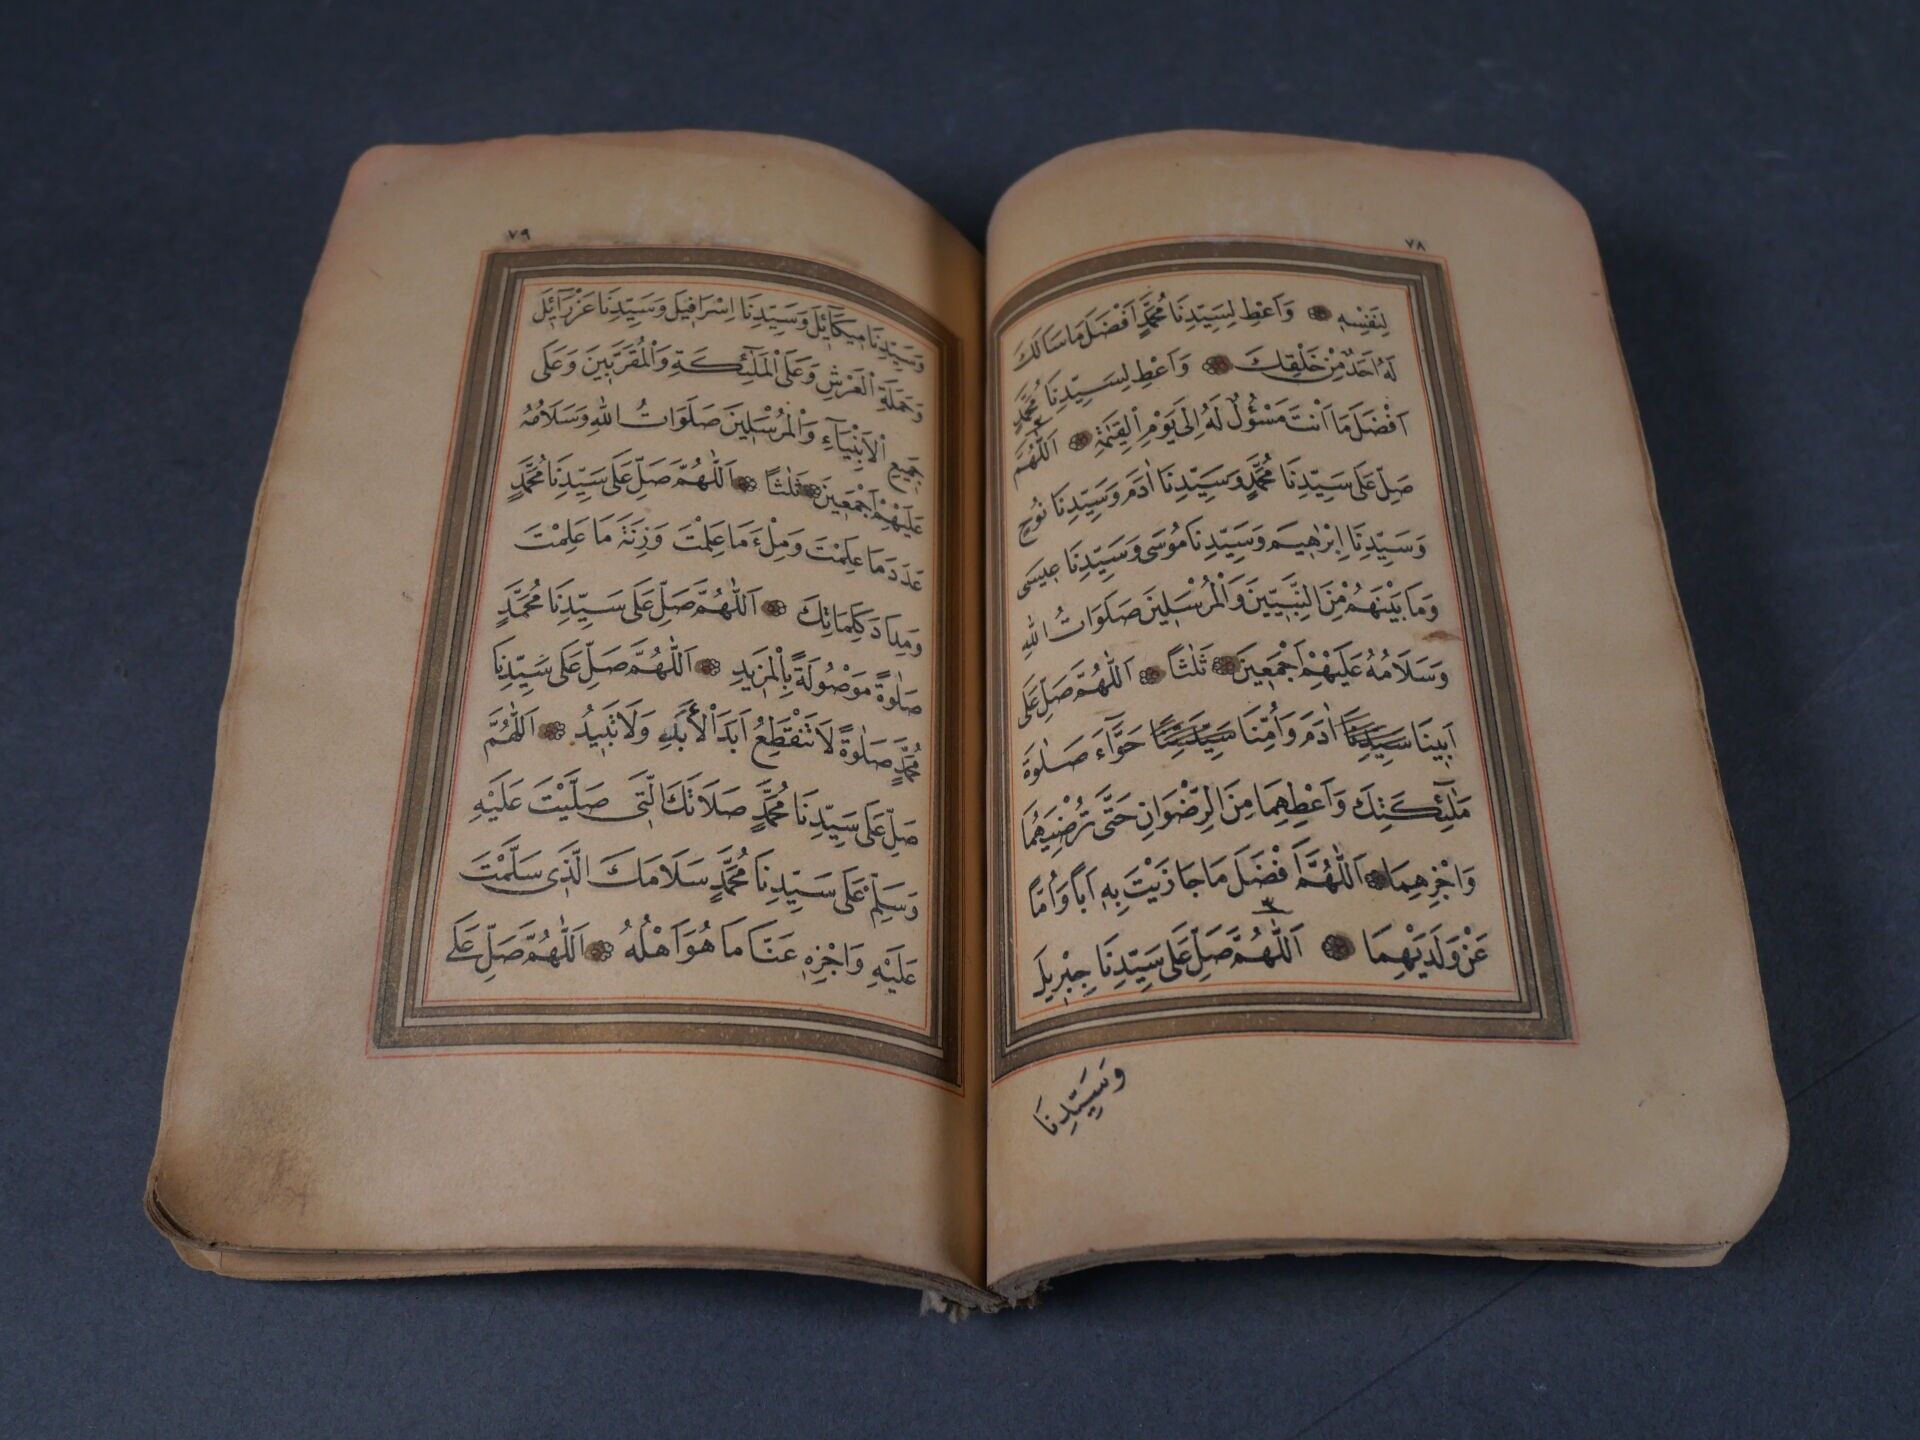 ٧٨
لِنَفْسِهِ وَاَعْطِ لِسَيِّدِنَا مُحَمَّدٍ اَفْضَلَ مَا سَاَلَكَ
لَهُ اَحَدٌ مِنْ خَلْقِكَ وَاَعْطِ لِسَيِّدِنَا مُحَمَّدٍ
اَفْضَلَ مَا اَنْتَ مَسْؤُلٌ لَهُ اِلٰى يَوْمِ الْقِيٰمَةِ اَللّٰهُمَّ
صَلِّ عَلٰى سَيِّدِنَا مُحَمَّدٍ وَسَيِّدِنَا اٰدَمَ وَسَيِّدِنَا نُوحٍ
وَسَيِّدِنَا اِبْرٰهِيمَ وَسَيِّدِنَا مُوسٰى وَسَيِّدِنَا عِيسٰى
وَمَا بَيْنَهُمْ مِنَ النَّبِيِّينَ وَالْمُرْسَلِينَ صَلَوَاتُ اللّٰهِ
وَسَلَامُهُ عَلَيْهِمْ اَجْمَعِينَ ثَلٰثًا اَللّٰهُمَّ صَلِّ عَلٰى
اَبِينَا سَيِّدِنَا اٰدَمَ وَاُمِّنَا سَيِّدَتِنَا حَوَّاءَ صَلٰوةَ
مَلٰئِكَتِكَ وَاَعْطِهِمَا مِنَ الرِّضْوَانِ حَتّٰى تُرْضِيَهُمَا
وَاجْزِهِمَا اَللّٰهُمَّ اَفْضَلَ مَا جَازَيْتَ بِهِ اَبًا وَاُمًّا
عَنْ وَلَدَيْهِمَا ٣ اَللّٰهُمَّ صَلِّ عَلٰى سَيِّدِنَا جِبْرِيلَ
وَسَيِّدِنَا
٧٩
وَسَيِّدِنَا مِيكَائِلَ وَسَيِّدِنَا اِسْرَافِيلَ وَسَيِّدِنَا عَزْرَائِلَ
وَحَمَلَةِ الْعَرْشِ وَعَلَى الْمَلٰئِكَةِ وَالْمُقَرَّبِينَ وَعَلٰى
جَمِيعِ الْاَنْبِيَاءِ وَالْمُرْسَلِينَ صَلَوَاتُ اللّٰهِ وَسَلَامُهُ
عَلَيْهِمْ اَجْمَعِينَ ثَلٰثًا اَللّٰهُمَّ صَلِّ عَلٰى سَيِّدِنَا مُحَمَّدٍ
عَدَدَ مَا عَلِمْتَ وَمِلْءَ مَا عَلِمْتَ وَزِنَةَ مَا عَلِمْتَ
وَمِدَادَ كَلِمَاتِكَ اَللّٰهُمَّ صَلِّ عَلٰى سَيِّدِنَا مُحَمَّدٍ
صَلٰوةً مَوْصُولَةً بِالْمَزِيدِ اَللّٰهُمَّ صَلِّ عَلٰى سَيِّدِنَا
مُحَمَّدٍ صَلٰوةً لَا تَنْقَطِعُ اَبَدَ الْاَبَدِ وَلَا تَبِيدُ اَللّٰهُمَّ
صَلِّ عَلٰى سَيِّدِنَا مُحَمَّدٍ صَلَاتَكَ الَّتِى صَلَّيْتَ عَلَيْهِ
وَسَلِّمْ عَلٰى سَيِّدِنَا مُحَمَّدٍ سَلَامَكَ الَّذِى سَلَّمْتَ
عَلَيْهِ وَاجْزِهِ عَنَّا مَا هُوَ اَهْلُهُ اَللّٰهُمَّ صَلِّ عَلٰى